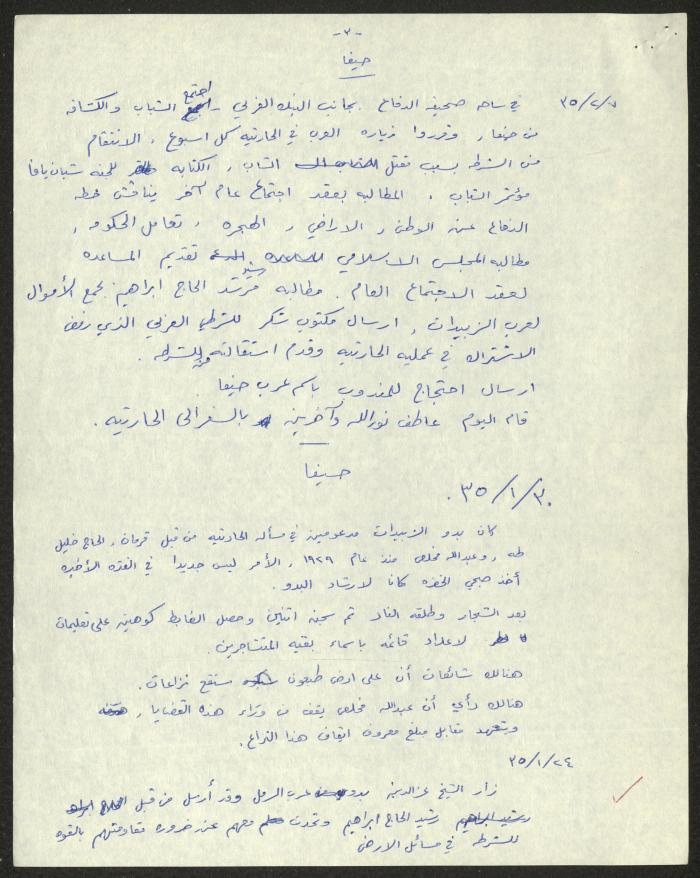 -٣-
حيفا
٣٥/٢/٠ في ساحه صحيفه الدفاع بجانب البنك العربي اجتمع الشباب والكشافه
من حيفا، وقرروا زياره العرب في الحارثيه كل اسبوع، الانتقام
من الشرطه بسبب مقتل الشاب، الكتابه للجنه شبان يافا
مؤتمر الشباب، المطالبه بعقد اجتماع عام آخر يناقش خطه
الدفاع عن الوطن، الاراضي، الهجره، تعامل الحكومه،
مطالبه المجلس الاسلامي تقديم المساعده
لعقد الاجتماع العام. مطالبه رشيد الحاج ابراهيم بجمع الأموال
لعرب الزبيدات، ارسال مكتوب شكر للشرطي العربي الذي رفض
الاشتراك في عمليه الحارثيه وقدم استقالته للشرطه.
ارسال احتجاج للمندوب باسم عرب حيفا.
قام اليوم عاطف نورالله وآخرين بالسفر الى الحارثيه.
حيفا
٣٥/١/٣٠.
كان بدو الزبيدات مدعومين في مسأله الحارثيه من قبل قرمان، الحاج خليل
طه، وعبدالله مخلص منذ عام ١٩٢٩، الأمر ليس جديدا في الفتره الأخيره
أخذ صبحي الخضره كانا لارشاد البدو.
بعد الشجار وطلقه النار تم سجن اثنين وحصل الضابط كوهين على تعليمات
لاعداد قائمه باسماء بقيه المتشاجرين.
هنالك شائعات أن على ارض طبعون ستقع نزاعات.
هنالك رأي أن عبدالله مخلص يقف من وراء هذه القضايا،
ويتعهد مقابل مبلغ معروف ايقاف هذا النزاع.
٣٥/١/٢٤
زار الشيخ عزالدين بدو عرب الرمل وقد أرسل من قبل
رشيد الحاج ابراهيم وتحدث معهم عن ضروره مقاومتهم بالقوه
للشرطه في مسائل الارض